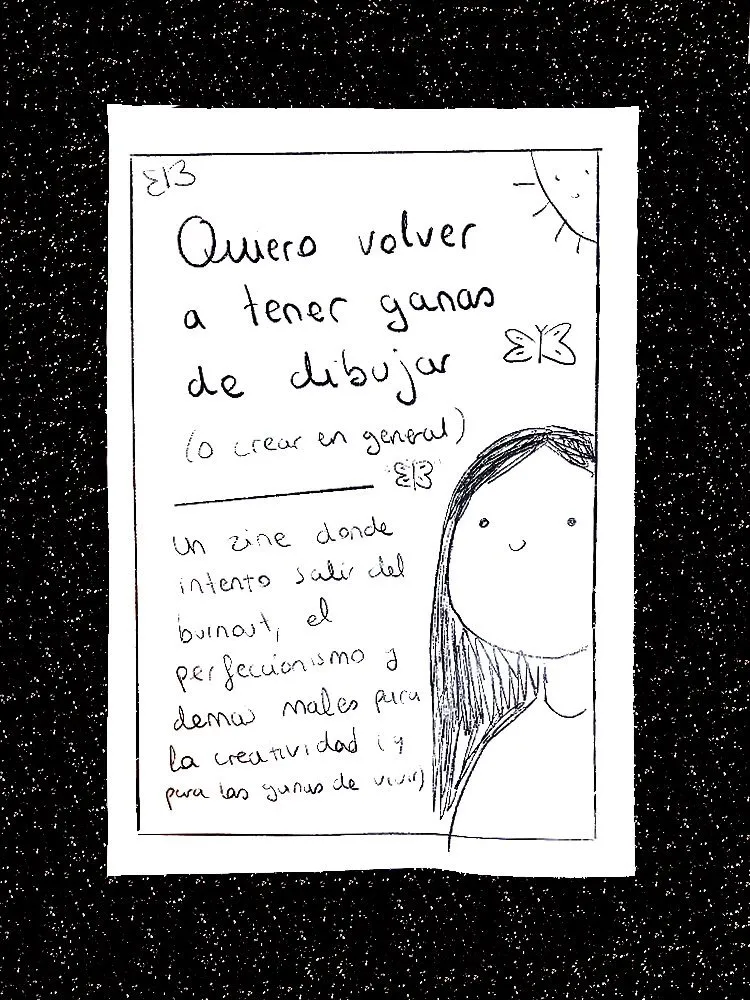 Quiero volver
a tener ganas
de dibujar
(o crear en general)
Un zine donde
intento salir del
burnout, el
perfeccionismo y
demas males para
la creatividad (y
para las ganas de vivir)